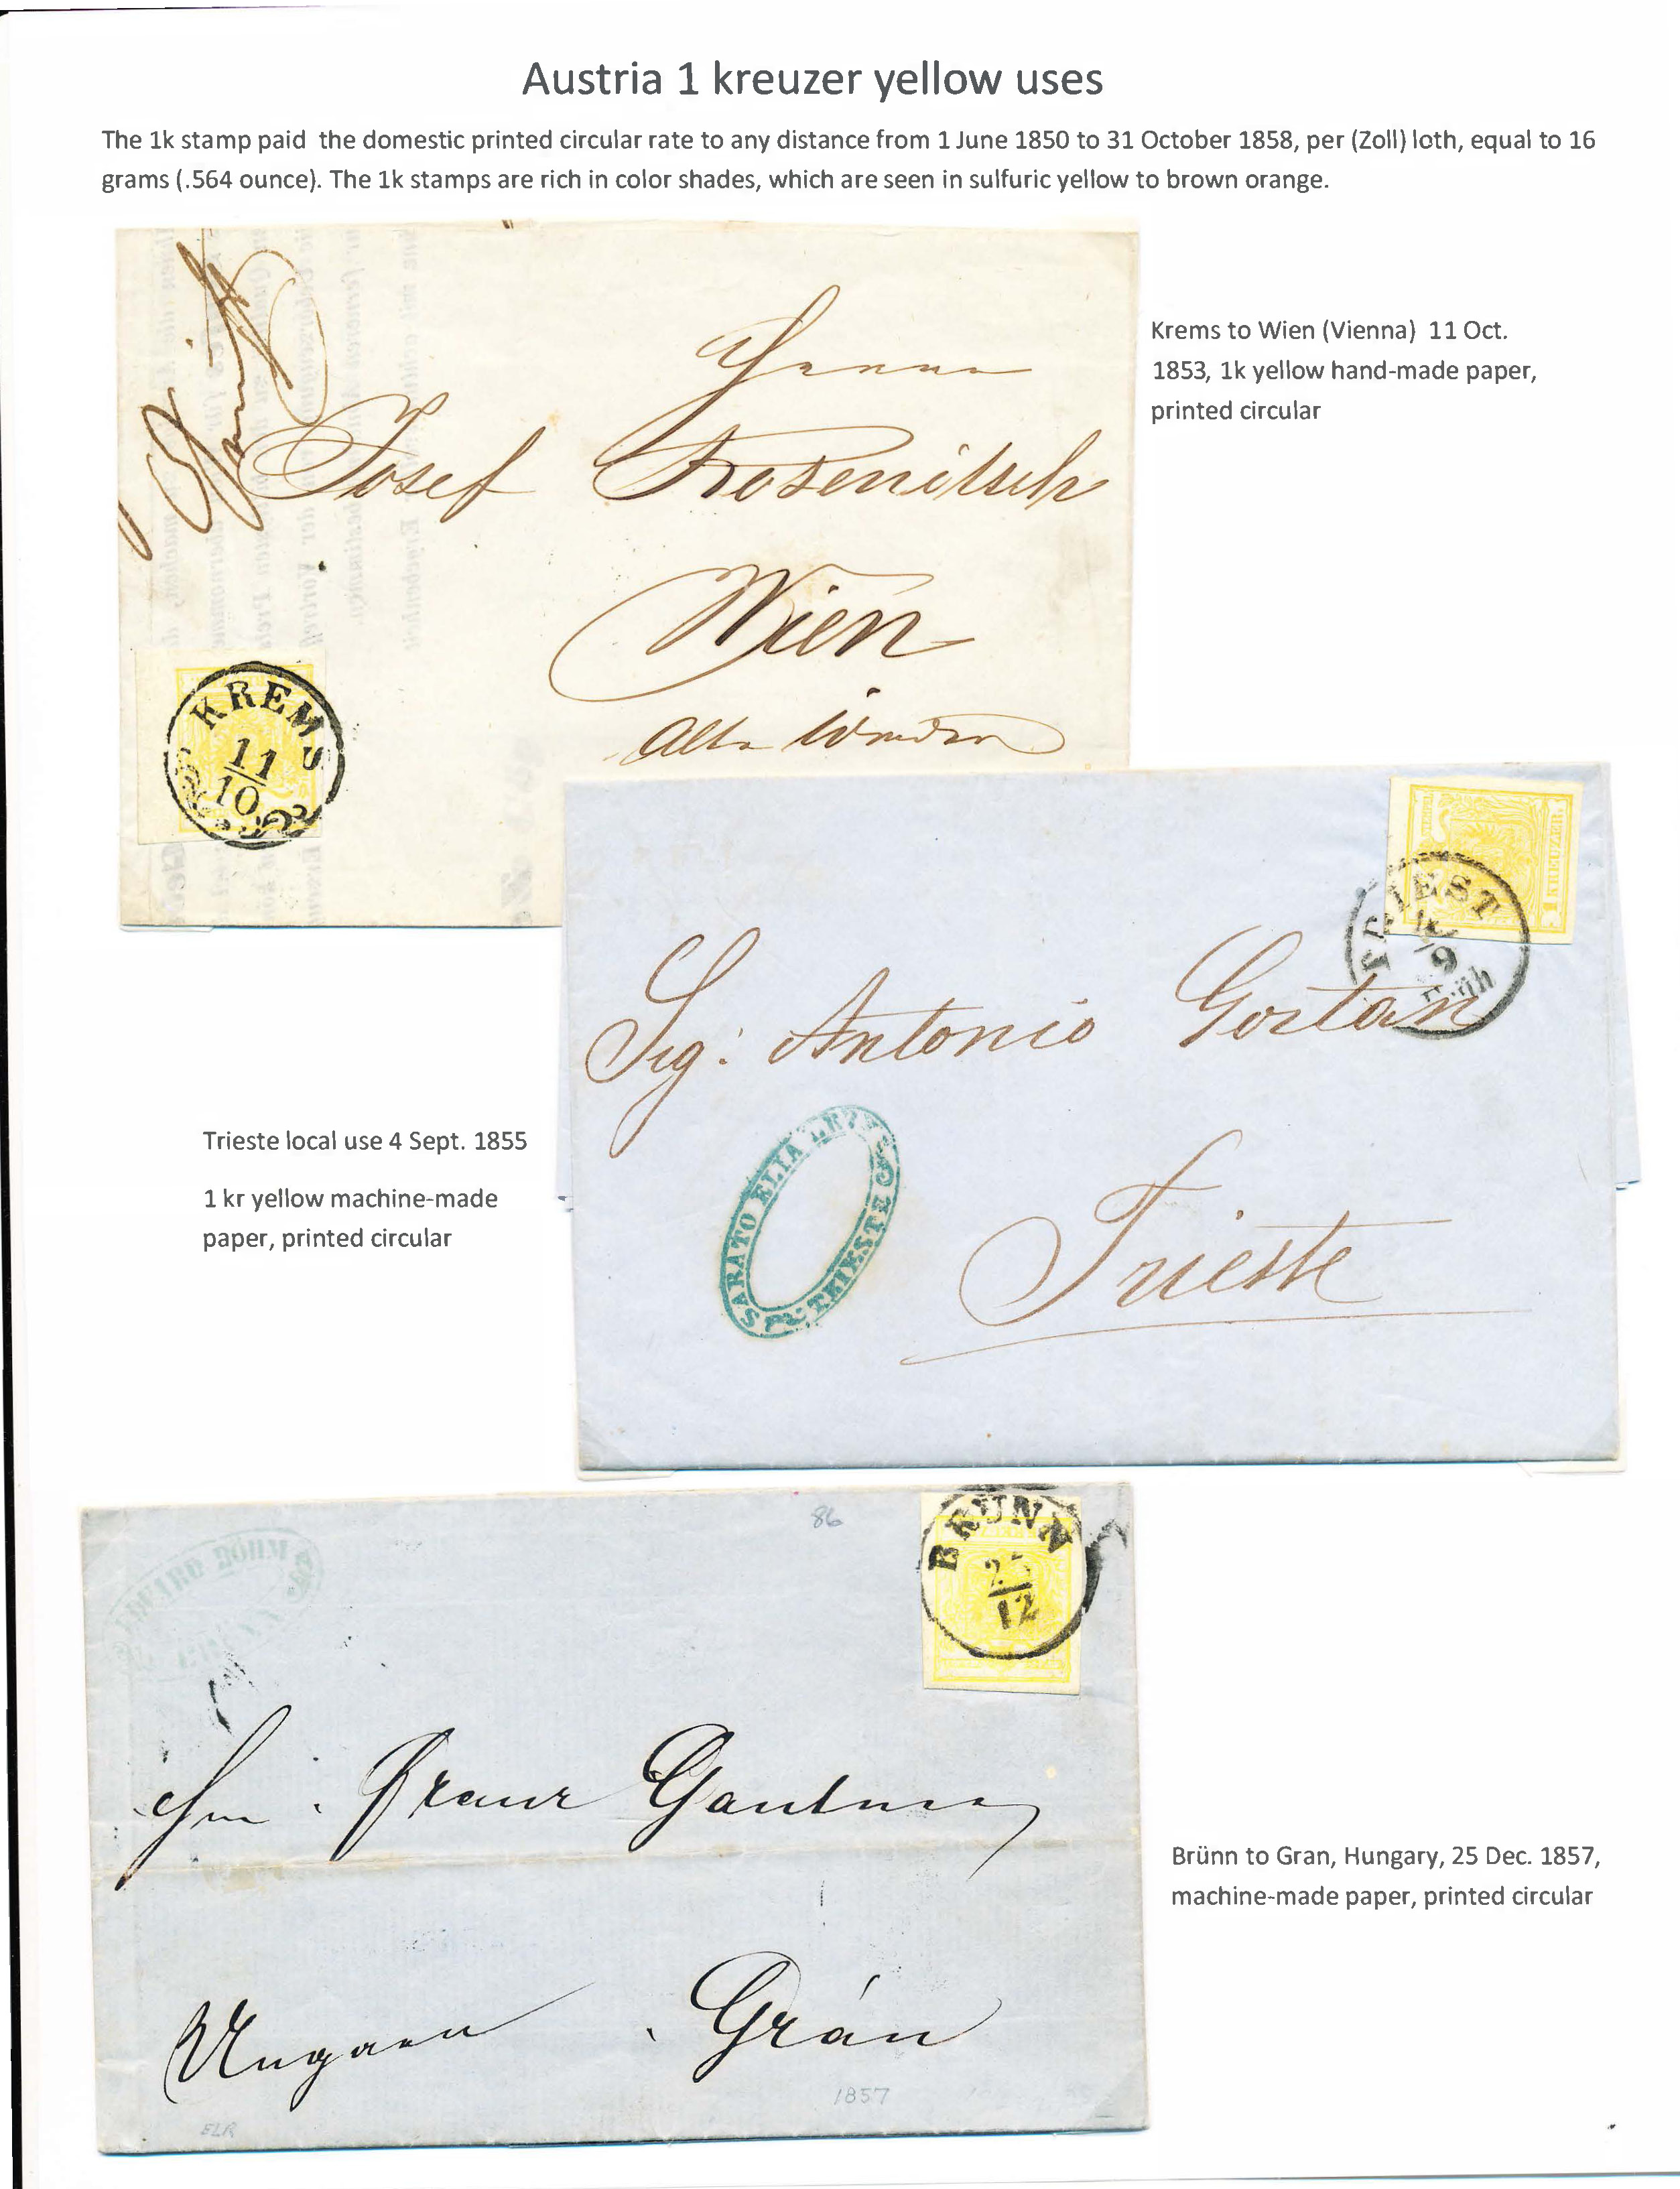 Austria 1 kreuzer yellow uses
The 1k stamp paid the domestic printed circular rate to any distance from 1 June 1850 to 31 October 1858, per (Zoll) loth, equal to 16
grams (.564 ounce). The 1k stamps are rich in color shades, which are seen in sulfuric yellow to brown orange.
Krems to Wien (Vienna) 11 Oct.
1853, 1k yellow hand-made paper,
printed circular
Herrn
Josef Rosenitsch
Wien
KREMS
11
10
1 KREUZER.
TRIEST
9
Früh
Sig: Antonio Gortan
Trieste
SARATO ELIA
TRIESTE
Trieste local use 4 Sept. 1855
1 kr yellow machine-made
paper, printed circular
86
BRÜNN
12
EDUARD BÖHM
BRÜNN
Franz
Ungarn . Grán
1857
ELR
Brünn to Gran, Hungary, 25 Dec. 1857,
machine-made paper, printed circular